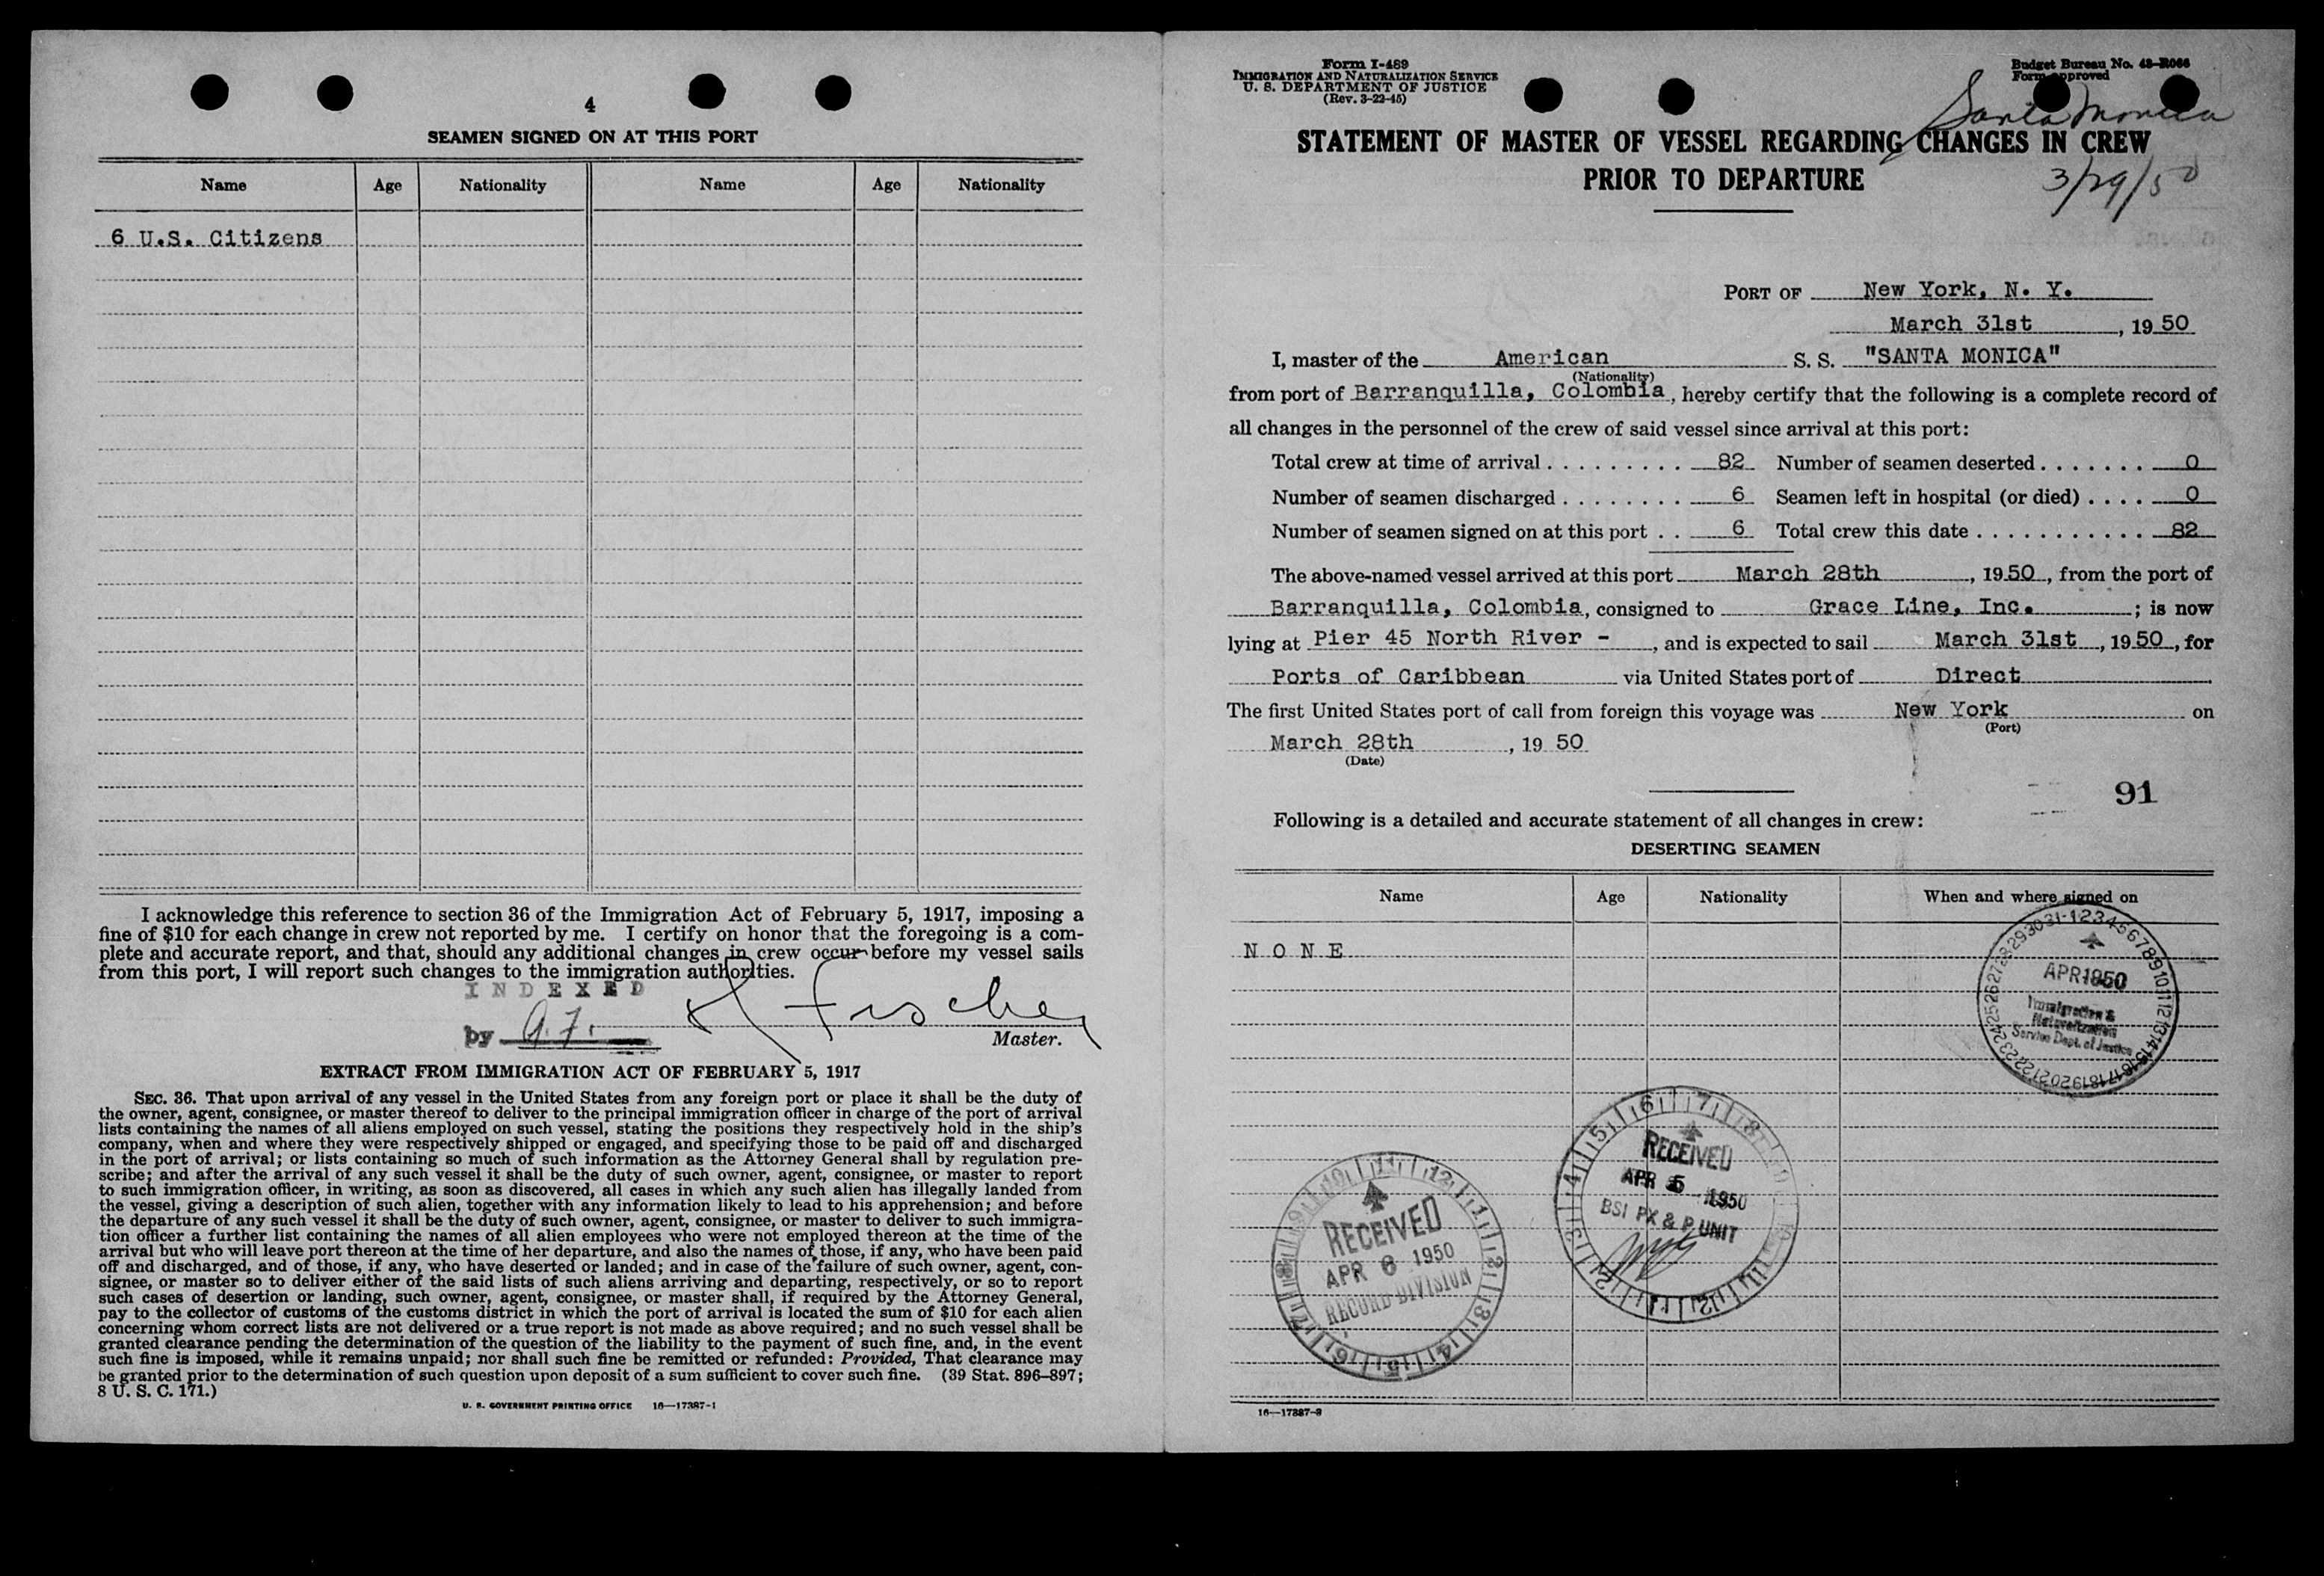 4
SEAMEN SIGNED ON AT THIS PORT
Name Age Nationality Name Age Nationality
6 U.S. Citizens
I acknowledge this reference to section 36 of the Immigration Act of February 5, 1917, imposing a
fine of $10 for each change in crew not reported by me. I certify on honor that the foregoing is a com-
plete and accurate report, and that, should any additional changes in crew occur before my vessel sails
from this port, I will report such changes to the immigration authorities.
INDEXED
by A. F. H Fischer
Master.
EXTRACT FROM IMMIGRATION ACT OF FEBRUARY 5, 1917
SEC. 36. That upon arrival of any vessel in the United States from any foreign port or place it shall be the duty of
the owner, agent, consignee, or master thereof to deliver to the principal immigration officer in charge of the port of arrival
lists containing the names of all aliens employed on such vessel, stating the positions they respectively hold in the ship's
company, when and where they were respectively shipped or engaged, and specifying those to be paid off and discharged
in the port of arrival; or lists containing so much of such information as the Attorney General shall by regulation pre-
scribe; and after the arrival of any such vessel it shall be the duty of such owner, agent, consignee, or master to report
to such immigration officer, in writing, as soon as discovered, all cases in which any such alien has illegally landed from
the vessel, giving a description of such alien, together with any information likely to lead to his apprehension; and before
the departure of any such vessel it shall be the duty of such owner, agent, consignee, or master to deliver to such immigra-
tion officer a further list containing the names of all alien employees who were not employed thereon at the time of the
arrival but who will leave port thereon at the time of her departure, and also the names of those, if any, who have been paid
off and discharged, and of those, if any, who have deserted or landed; and in case of the failure of such owner, agent, con-
signee, or master so to deliver either of the said lists of such aliens arriving and departing, respectively, or so to report
such cases of desertion or landing, such owner, agent, consignee, or master shall, if required by the Attorney General,
pay to the collector of customs of the customs district in which the port of arrival is located the sum of $10 for each alien
concerning whom correct lists are not delivered or a true report is not made as above required; and no such vessel shall be
granted clearance pending the determination of the question of the liability to the payment of such fine, and, in the event
such fine is imposed, while it remains unpaid; nor shall such fine be remitted or refunded: Provided, That clearance may
be granted prior to the determination of such question upon deposit of a sum sufficient to cover such fine. (39 Stat. 896–897;
8 U. S. C. 171.)
U. S. GOVERNMENT PRINTING OFFICE 16—17387-1
Form I-489
IMMIGRATION AND NATURALIZATION SERVICE
U. S. DEPARTMENT OF JUSTICE
(Rev. 3-22-45)
Budget Bureau No. 43-R066
Form approved
Santa Monica
STATEMENT OF MASTER OF VESSEL REGARDING CHANGES IN CREW
PRIOR TO DEPARTURE
3/29/50
PORT OF New York, N. Y.
March 31st, 19 50
I, master of the American S. S. "SANTA MONICA"
(Nationality)
from port of Barranquilla, Colombia, hereby certify that the following is a complete record of
all changes in the personnel of the crew of said vessel since arrival at this port:
Total crew at time of arrival . . . . . . . . . 82 Number of seamen deserted . . . . . . . 0
Number of seamen discharged . . . . . . . . 6 Seamen left in hospital (or died) . . . . 0
Number of seamen signed on at this port . . 6 Total crew this date . . . . . . . . . . . 82
The above-named vessel arrived at this port March 28th, 1950, from the port of
Barranquilla, Colombia, consigned to Grace Line, Inc.; is now
lying at Pier 45 North River -, and is expected to sail March 31st, 1950, for
Ports of Caribbean via United States port of Direct
The first United States port of call from foreign this voyage was New York on
(Port)
March 28th, 19 50
(Date)
91
Following is a detailed and accurate statement of all changes in crew:
DESERTING SEAMEN
Name Age Nationality When and where signed on
NONE
APR 1950
Immigration &
Naturalization
Service Dept. of Justice
RECEIVED
APR 5 1950
BSI PX & P UNIT
RECEIVED
APR 6 1950
RECORD DIVISION
16—17387-2